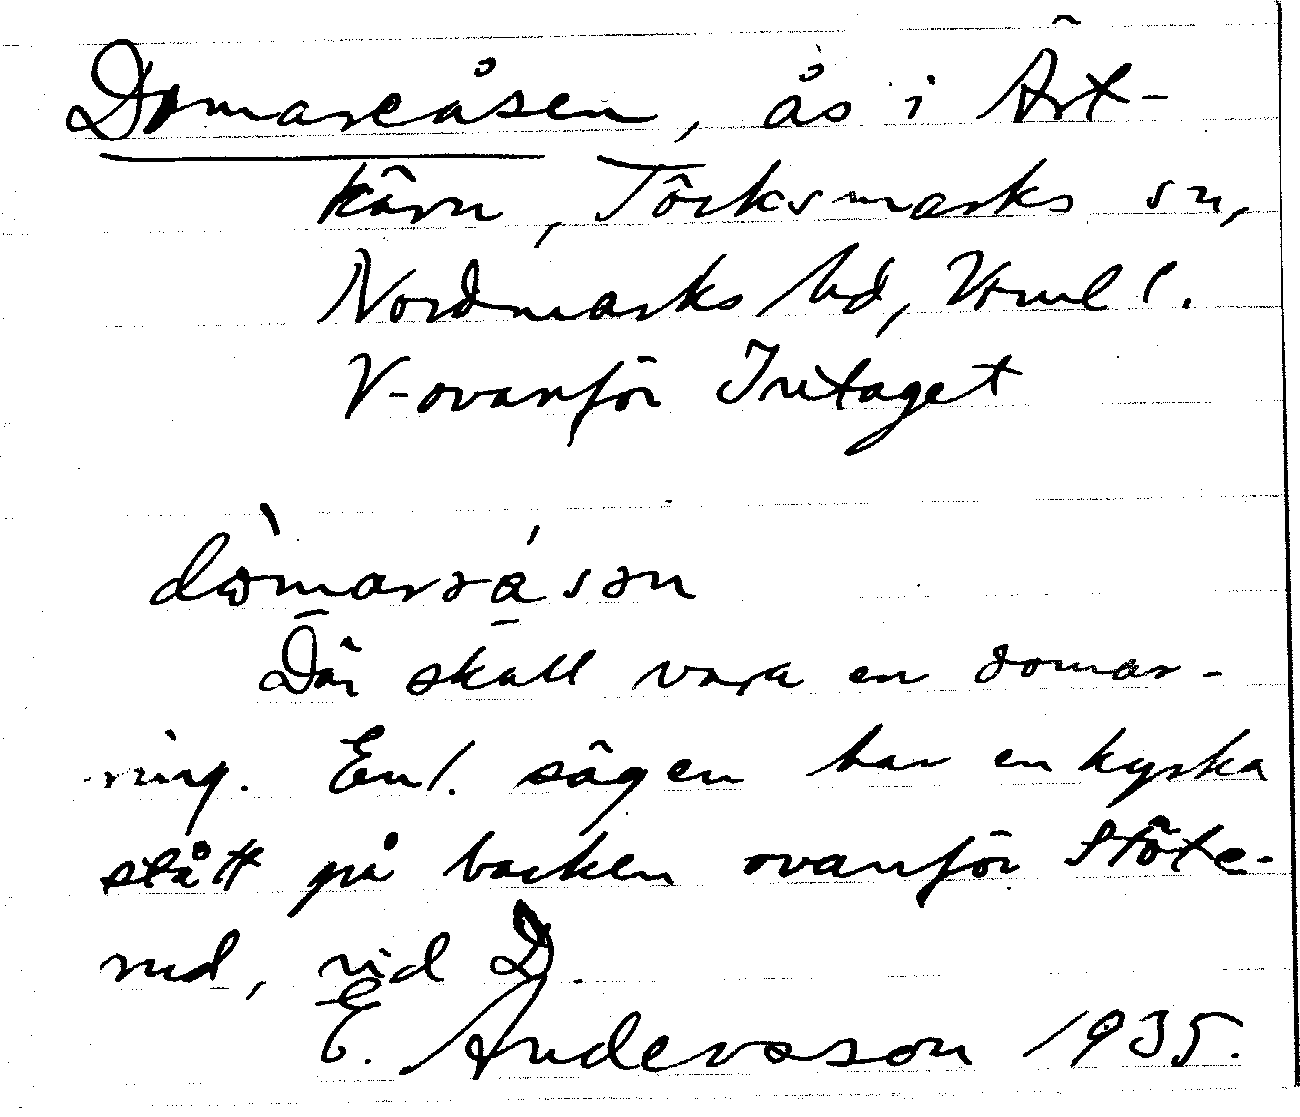 Domareåsen, ås i Årt-
kärn, Töcksmarks sn,
Nordmarks hd, Vrml.
V-ovanför Intaget
dὼmarəásən
Där skall vara en domar-
ring. Enl. sägen har en kyrka
stått på backen ovanför Stöte-
rud, vid D.
E. Andersson 1935.